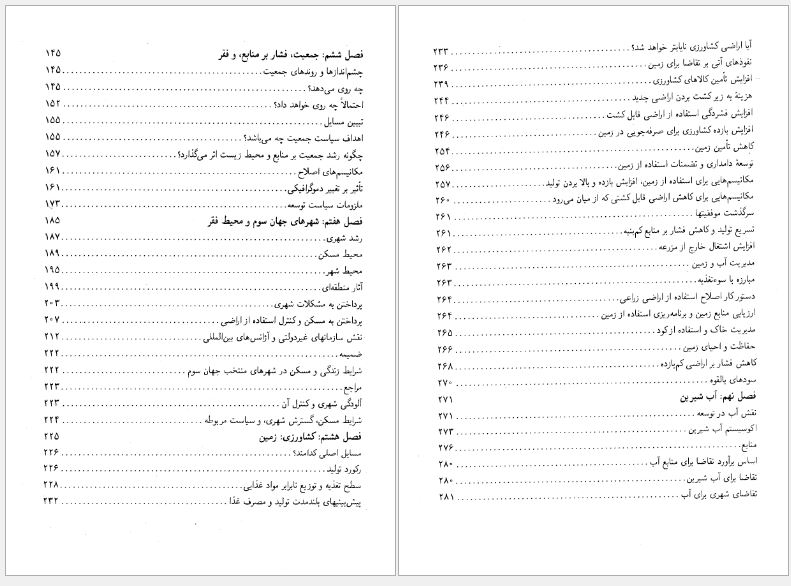 فصل ششم: جمعیت، فشار بر منابع، و فقر ۱۴۵
چشم‌اندازها و روندهای جمعیت ۱۴۵
چه روی می‌دهد؟ ۱۴۵
احتمالاً چه روی خواهد داد؟ ۱۵۲
تبیین مسایل ۱۵۵
اهداف سیاست جمعیت چه می‌باشد؟ ۱۵۵
چگونه رشد جمعیت بر منابع و محیط زیست اثر می‌گذارد؟ ۱۵۷
مکانیسم‌های اصلاح ۱۶۱
تأثیر بر تغییر دموگرافیکی ۱۶۱
ملزومات سیاست توسعه ۱۷۳
فصل هفتم: شهرهای جهان سوم و محیط فقر ۱۸۵
رشد شهری ۱۸۷
محیط مسکن ۱۸۹
محیط شهر ۱۹۵
آثار منطقه‌ای ۱۹۹
پرداختن به مشکلات شهری ۲۰۳
پرداختن به مسکن و کنترل استفاده از اراضی ۲۰۷
نقش سازمانهای غیردولتی و آژانس‌های بین‌المللی ۲۱۲
ضمیمه ۲۲۲
شرایط زندگی و مسکن در شهرهای منتخب جهان سوم ۲۲۲
مراجع ۲۲۳
آلودگی شهری و کنترل آن ۲۲۳
شرایط مسکن، گسترش شهری، و سیاست مربوطه ۲۲۴
فصل هشتم: کشاورزی: زمین ۲۲۵
مسایل اصلی کدامند؟ ۲۲۶
رکورد تولید ۲۲۶
سطح تغذیه و توزیع نابرابر مواد غذایی ۲۲۸
پیش‌بینیهای بلندمدت تولید و مصرف غذا ۲۳۲
آیا اراضی کشاورزی نایابتر خواهد شد؟ ۲۳۳
نفوذهای آتی بر تقاضا برای زمین ۲۳۶
افزایش تأمین کالاهای کشاورزی ۲۳۹
هزینهٔ به زیر کشت بردن اراضی جدید ۲۴۴
افزایش فشردگی استفاده از اراضی قابل کشت ۲۴۶
افزایش بازده کشاورزی برای صرفه‌جویی در زمین ۲۴۶
کاهش تأمین زمین ۲۵۴
توسعهٔ دامداری و تضمنات استفاده از زمین ۲۵۶
مکانیسم‌هایی برای استفاده از زمین، افزایش بازده و بالا بردن تولید ۲۵۷
مکانیسم‌هایی برای کاهش اراضی قابل کشتی که از میان می‌رود ۲۶۰
سرگذشت موفقیتها ۲۶۱
تسریع تولید و کاهش فشار بر منابع کم‌بنیه ۲۶۱
افزایش اشتغال خارج از مزرعه ۲۶۲
مدیریت آب و زمین ۲۶۳
مبارزه با سوءتغذیه ۲۶۳
دستور کار اصلاح استفاده از اراضی زراعی ۲۶۴
ارزیابی منابع زمین و برنامه‌ریزی استفاده از زمین ۲۶۴
مدیریت خاک و استفاده از کود ۲۶۵
حفاظت و احیای زمین ۲۶۶
کاهش فشار بر اراضی کم‌بازده ۲۶۸
سودهای بالقوه ۲۷۰
فصل نهم: آب شیرین ۲۷۱
نقش آب در توسعه ۲۷۱
اکوسیستم آب شیرین ۲۷۳
منابع ۲۷۶
اساس برآورد تقاضا برای منابع آب ۲۸۰
تقاضا برای آب شیرین ۲۸۰
تقاضای شهری برای آب ۲۸۱